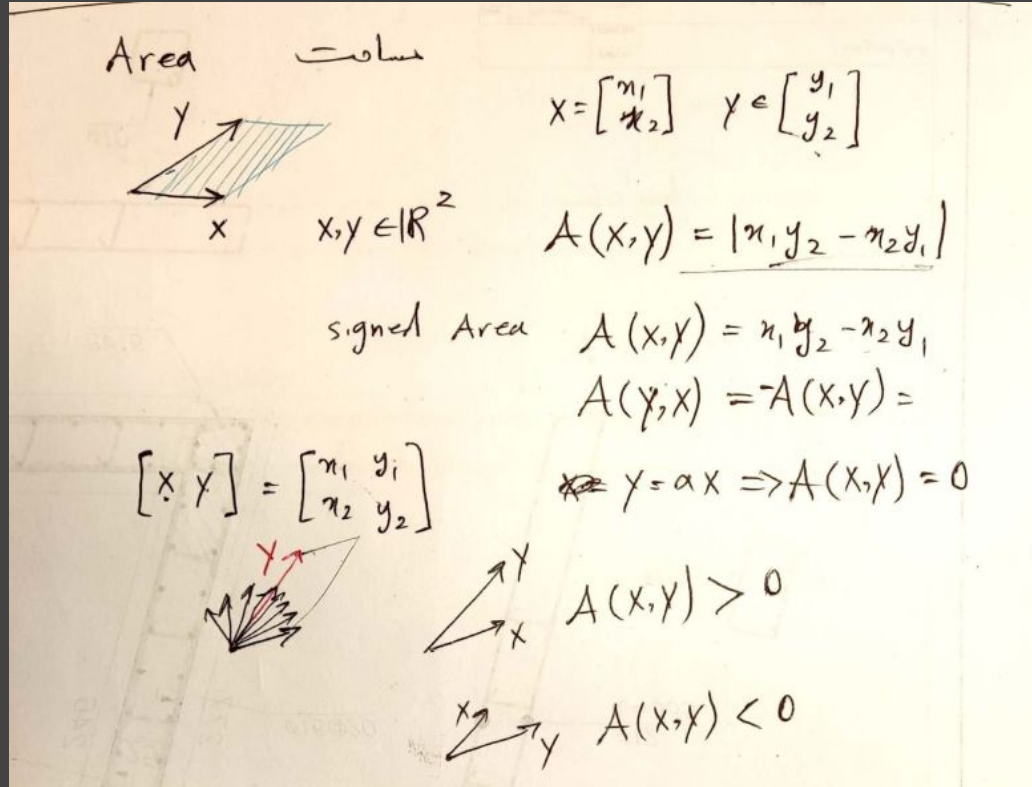 Area مساحت
X = [x₁ x₂] Y ∈ [y₁ y₂]
Y
X
X, Y ∈ ℝ²
A(X,Y) = |x₁y₂ - x₂y₁|
signed Area A(X,Y) = x₁y₂ - x₂y₁
A(Y,X) = -A(X,Y) =
[X Y] = [x₁ y₁ x₂ y₂]
Y = aX ⇒ A(X,Y) = 0
Y
Y
X
A(X,Y) > 0
X
Y
A(X,Y) < 0